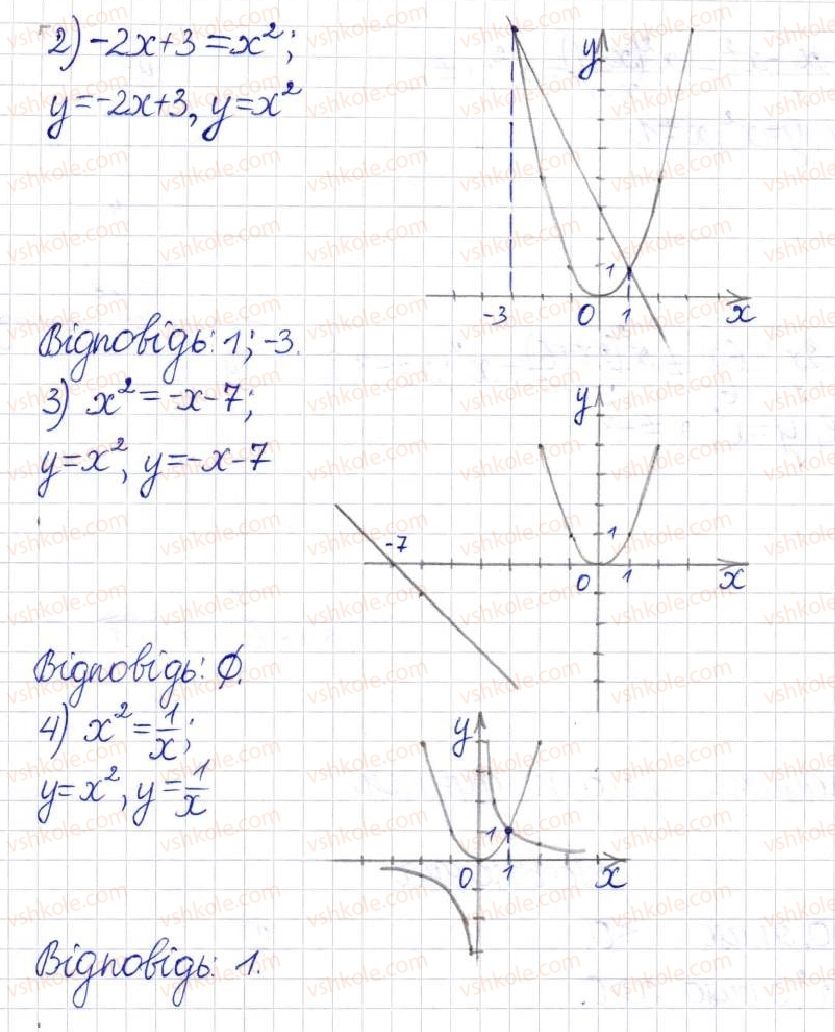 2) -2x+3=x²;
y=-2x+3, y=x²
y
1
-3 0 1 x
Відповідь: 1; -3.
3) x²=-x-7;
y=x², y=-x-7
y
-7 1
0 1 x
Відповідь: ∅.
4) x²=1/x;
y=x², y=1/x
y
1
0 1 x
Відповідь: 1.
vshkole.com